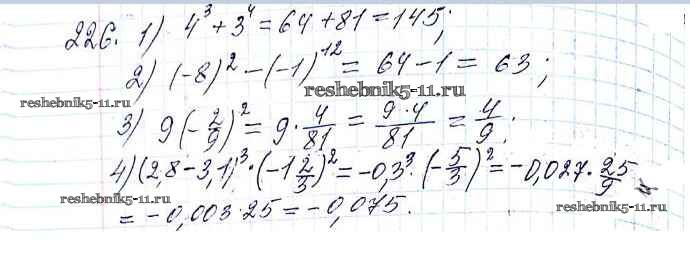 226. 1) 4³ + 3⁴ = 64 + 81 = 145;
2) (-8)² - (-1)¹² = 64 - 1 = 63;
reshebnik5-11.ru
reshebnik5-11.ru
3) 9(-2/9)² = 9 · 4/81 = 9·4/81 = 4/9;
4) (2,8 - 3,1)³ · (-1 2/3)² = -0,3³ · (-5/3)² = -0,027 · 25/9 =
reshebnik5-11.ru
reshebnik5-11.ru
= -0,003 · 25 = -0,075.